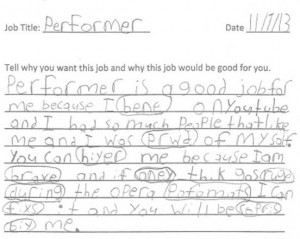 Job Title: Performer Date 11/7/13
Tell why you want this job and why this job would be good for you.
Performer is a good job for
me because I bene on Youtube
and I had so much People that like
me and I was prwd of MYself
You can hiyer me because I am
brave and if
the opera I can
it and You will be
me.